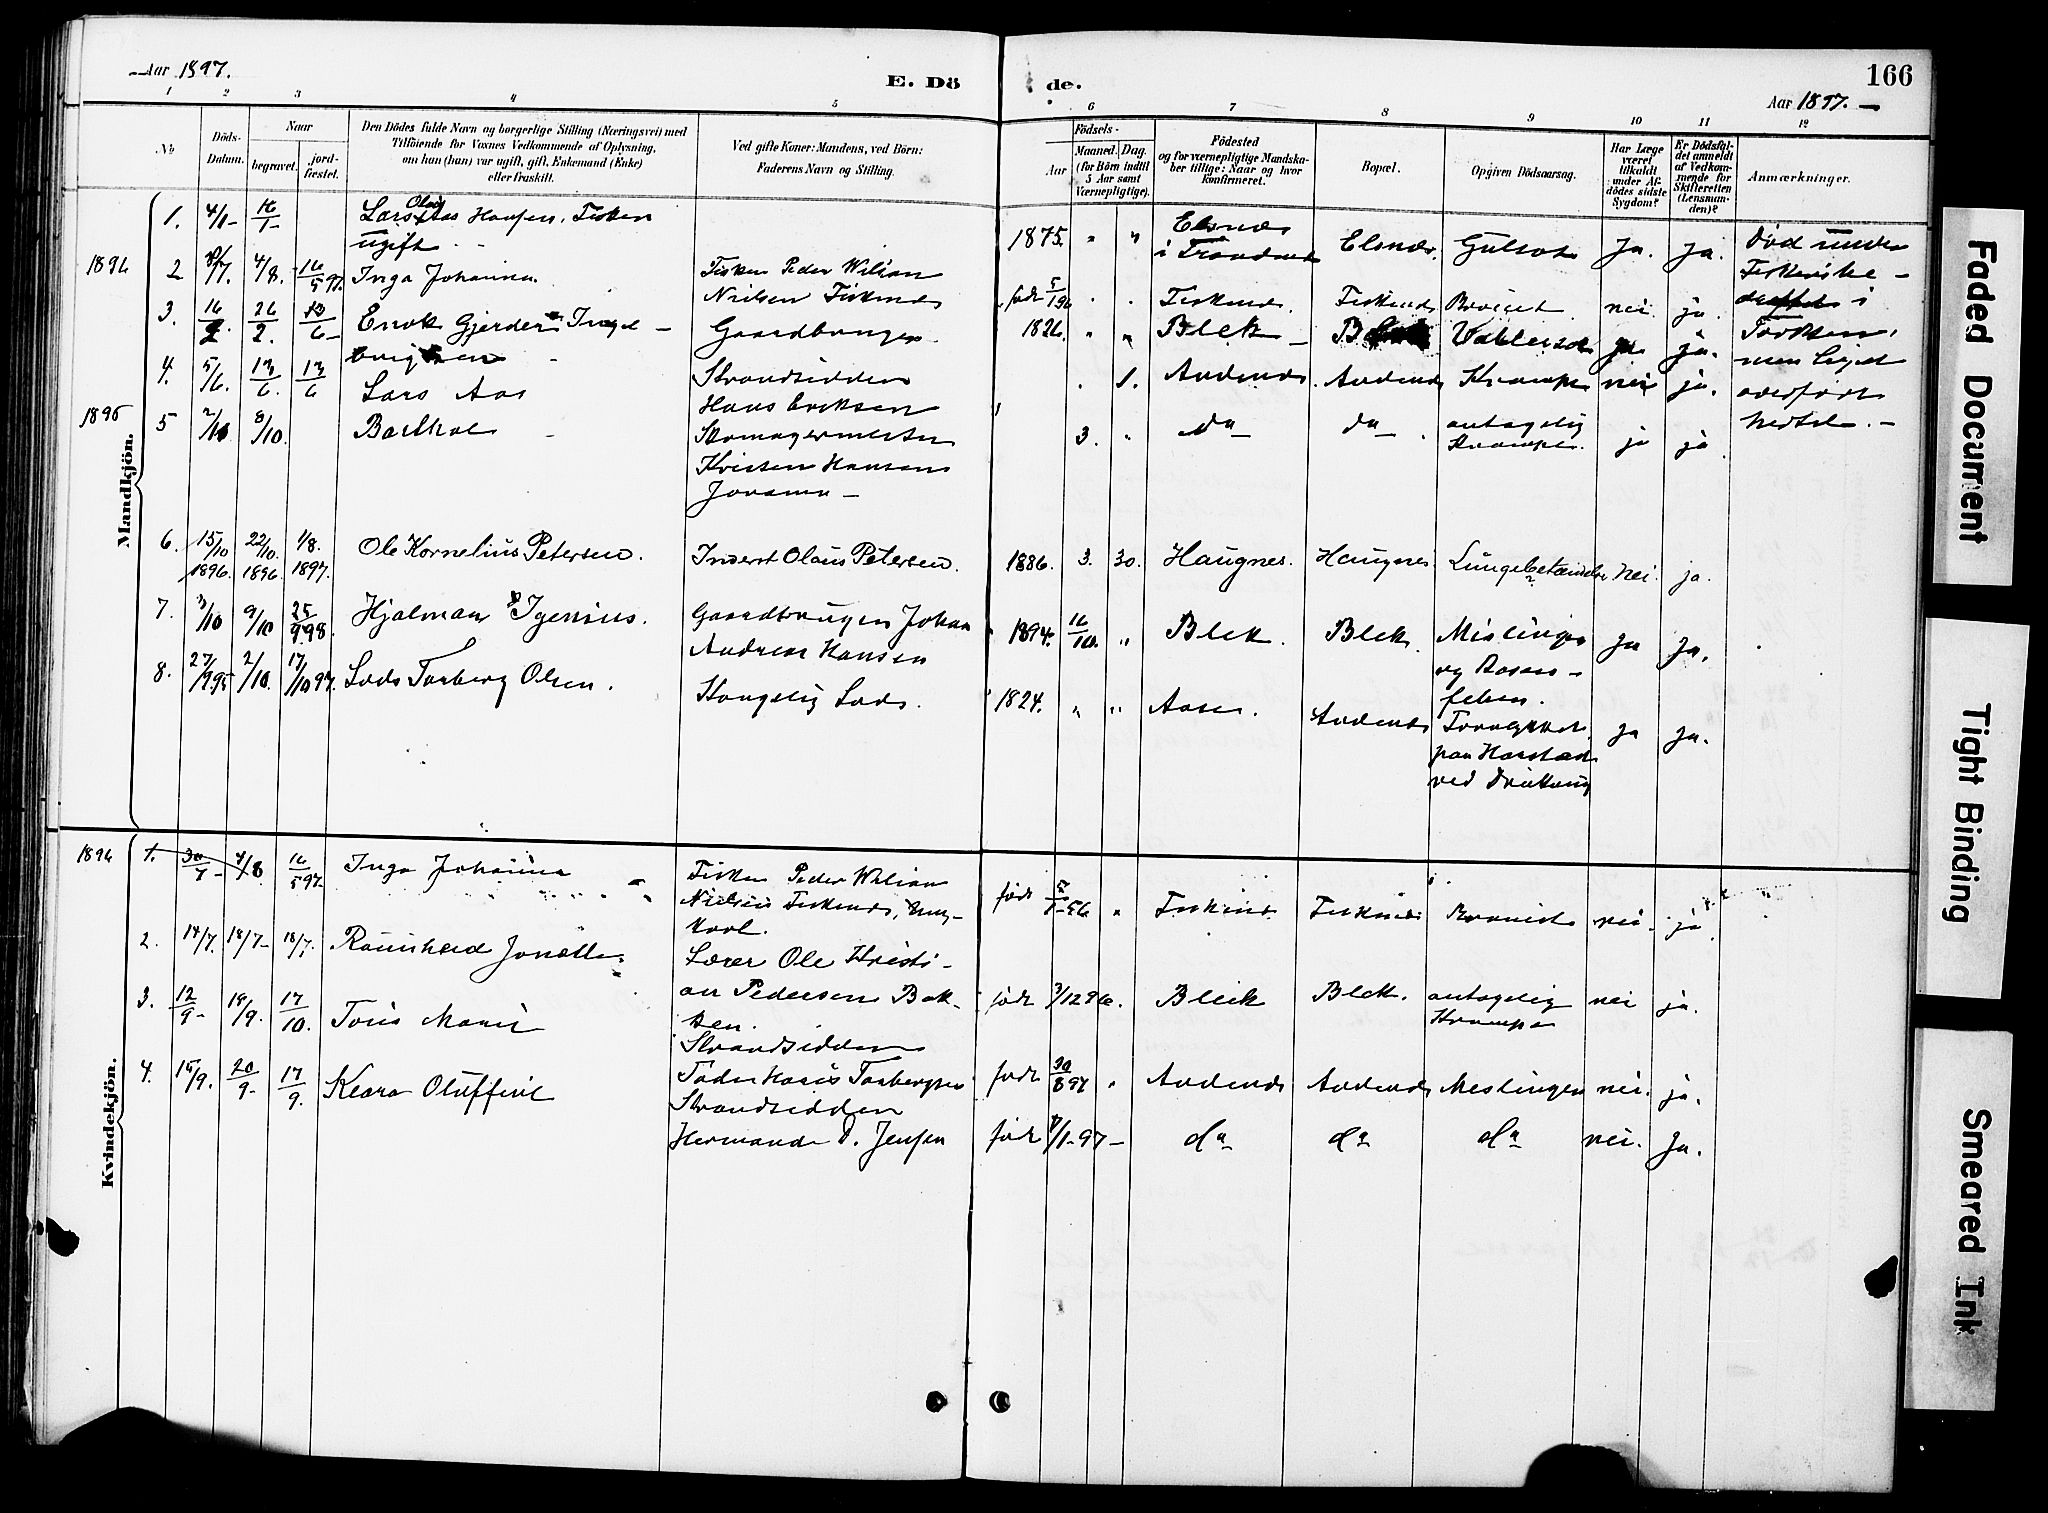 Aar 1897.
E. Dö
de.
166
Aar 1897. —
1 2 3 4 5 6 7 8 9 10 11 12
No
Döds-
Datum.
Naar
begravet.
jord-
fæstet.
Den Dödes fulde Navn og borgerlige Stilling (Næringsvei) med
Tilföiende for Voxnes Vedkommende af Oplysning,
om han (hun) var ugift, gift, Enkemand (Enke)
eller fraskilt.
Ved gifte Koner: Mandens, ved Börn:
Faderens Navn og Stilling.
Födsels-
Aar
Maaned.
Dag.
(for Börn indtil
5 Aar samt
Værnepligtige).
Födested
og for værnepligtige Mandska-
ber tillige: Naar og hvor
konfirmeret.
Bopæl.
Opgiven Dödsaarsag.
Har Læge
været
tilkaldt
under Af-
dödes sidste
Sygdom?
Er Dödsfal-
det anmeldt
af Vedkom-
mende for
Skifteretten
(Lensman-
den)?
Anmærkninger.
Mandkjön.
1. 4/1- 16/1- Lars Olai Aas Hansen. Fisker
ugift
1875. " " Elsnæs
i Trondenes Elsnæs. Gulsot Ja. Ja. Død under
Fisket
i
men Liget
overført
1896 2 4/8. 16/5 97. Inga Johanna
Fisker Peder Wilian
Nielsen Fiskenes
født 5/1 96 " " Fiskenes. Fiskenes Bronchit. nei. ja.
3. 16/2. 26/2. 13/6- Enok Gjerdes Ingel-
brigtsen
Gaardbruger
1826. " " Bleik — ja ja.
4. 5/6. 13/6. 13/6 Lars Aas
Strandsidder
Hans Eriksen
" 1. Andenes. Andenes Krampe nei ja.
1895 5 2/10 8/10. Barthol
Skomagermester
Kristen Hansen
3. " do do antagelig
Krampe. ja ja
6. 15/10 1896. 22/10 1896. 1/8. 1897. Ole Kornelius Petersen.
Inderst Olaus Petersen.
1886. 3. 30. Haugnes. Haugnes Lungebetændelse Nei. ja.
7. 3/10 9/10 25/9 98. Hjalmar Igenius.
Gaardbruger Johan
Andreas Hansen
1894. 16/10. " Bleik. Bleik. Mislinger
og Rosen-
feber. Ja Ja.
8. 27/9 95 2/10. 17/10 97. Lods Torberg Olsen.
Kongelig Lods.
1824. " " Aase. Andenes
paa Harstad
ved Drukning Ja Ja.
Kvindekjön.
1896 1. 30/7- 4/8 16/5 97. Inga Johanna
Fisker Peder Wilian
Nielsen Fiskenes, Ung-
karl.
født 5/1-96 " Fiskenes Fiskenes Bronchit nei. ja.
2. 14/7. 18/7- 18/7. Ragnhild Jonette.
Lærer Ole Kristi-
an Pedersen Bak-
ken.
født 3/12 96. Bleik Bleik. antagelig
Krampe nei ja.
3. 12/9- 19/9. 17/10. Toris Marie
Strandsidder
Peder Hans Torbergsen
født 30/8 97 " Andenes Andenes Meslinger nei. ja.
4. 15/9. 20/9- 17/9. Klara Oluffine
Strandsidder
Hermand P. Jensen
født 7/1-97- do do do nei. Ja.
Faded Document
Tight Binding
Smeared Ink